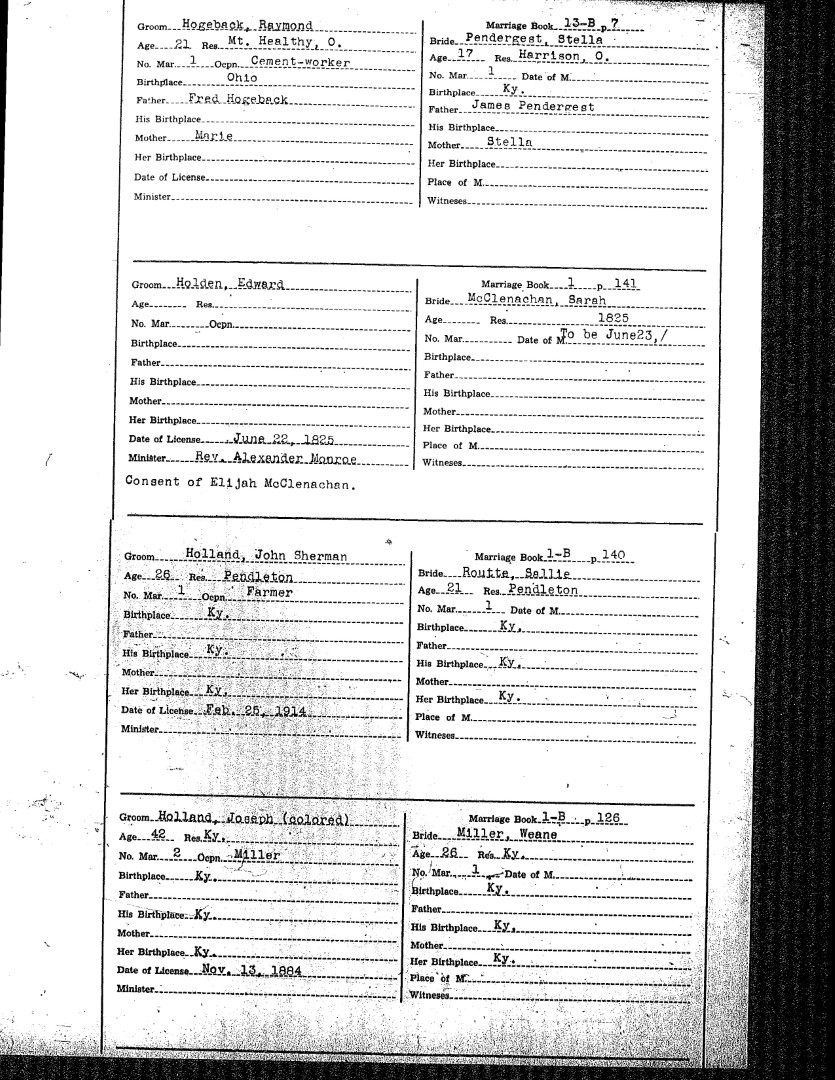 Groom Hogeback, Raymond
Age 21 Res. Mt. Healthy, O.
No. Mar. 1 Ocpn. Cement-worker
Birthplace Ohio
Father Fred Hogeback
His Birthplace
Mother Marie
Her Birthplace
Date of License
Minister
Marriage Book 13-B p 7
Bride Pendergest, Stella
Age 17 Res. Harrison, O.
No. Mar. 1 Date of M.
Birthplace Ky.
Father James Pendergest
His Birthplace
Mother Stella
Her Birthplace
Place of M.
Witneses
Groom Holden, Edward
Age Res.
No. Mar. Ocpn.
Birthplace
Father
His Birthplace
Mother
Her Birthplace
Date of License June 22, 1825
Minister Rev. Alexander Monroe
Consent of Elijah McClenachan.
Marriage Book 1 p 141
Bride McClenachan, Sarah
Age Res. 1825
No. Mar. Date of M. To be June23,/
Birthplace
Father
His Birthplace
Mother
Her Birthplace
Place of M.
Witneses
Groom Holland, John Sherman
Age 26 Res. Pendleton
No. Mar. 1 Ocpn. Farmer
Birthplace Ky.
Father
His Birthplace Ky.
Mother
Her Birthplace Ky.
Date of License Feb. 25, 1914
Minister
Marriage Book 1-B p 140
Bride Routte, Sallie
Age 21 Res. Pendleton
No. Mar. 1 Date of M.
Birthplace Ky.
Father
His Birthplace Ky.
Mother
Her Birthplace Ky.
Place of M.
Witneses
Groom Holland, Joseph (colored)
Age 42 Res. Ky.
No. Mar. 2 Ocpn. Miller
Birthplace Ky.
Father
His Birthplace Ky.
Mother
Her Birthplace Ky.
Date of License Nov. 13, 1884
Minister
Marriage Book 1-B p 126
Bride Miller, Weane
Age 26 Res. Ky.
No. Mar. 1 Date of M.
Birthplace Ky.
Father
His Birthplace Ky.
Mother
Her Birthplace Ky.
Place of M.
Witneses